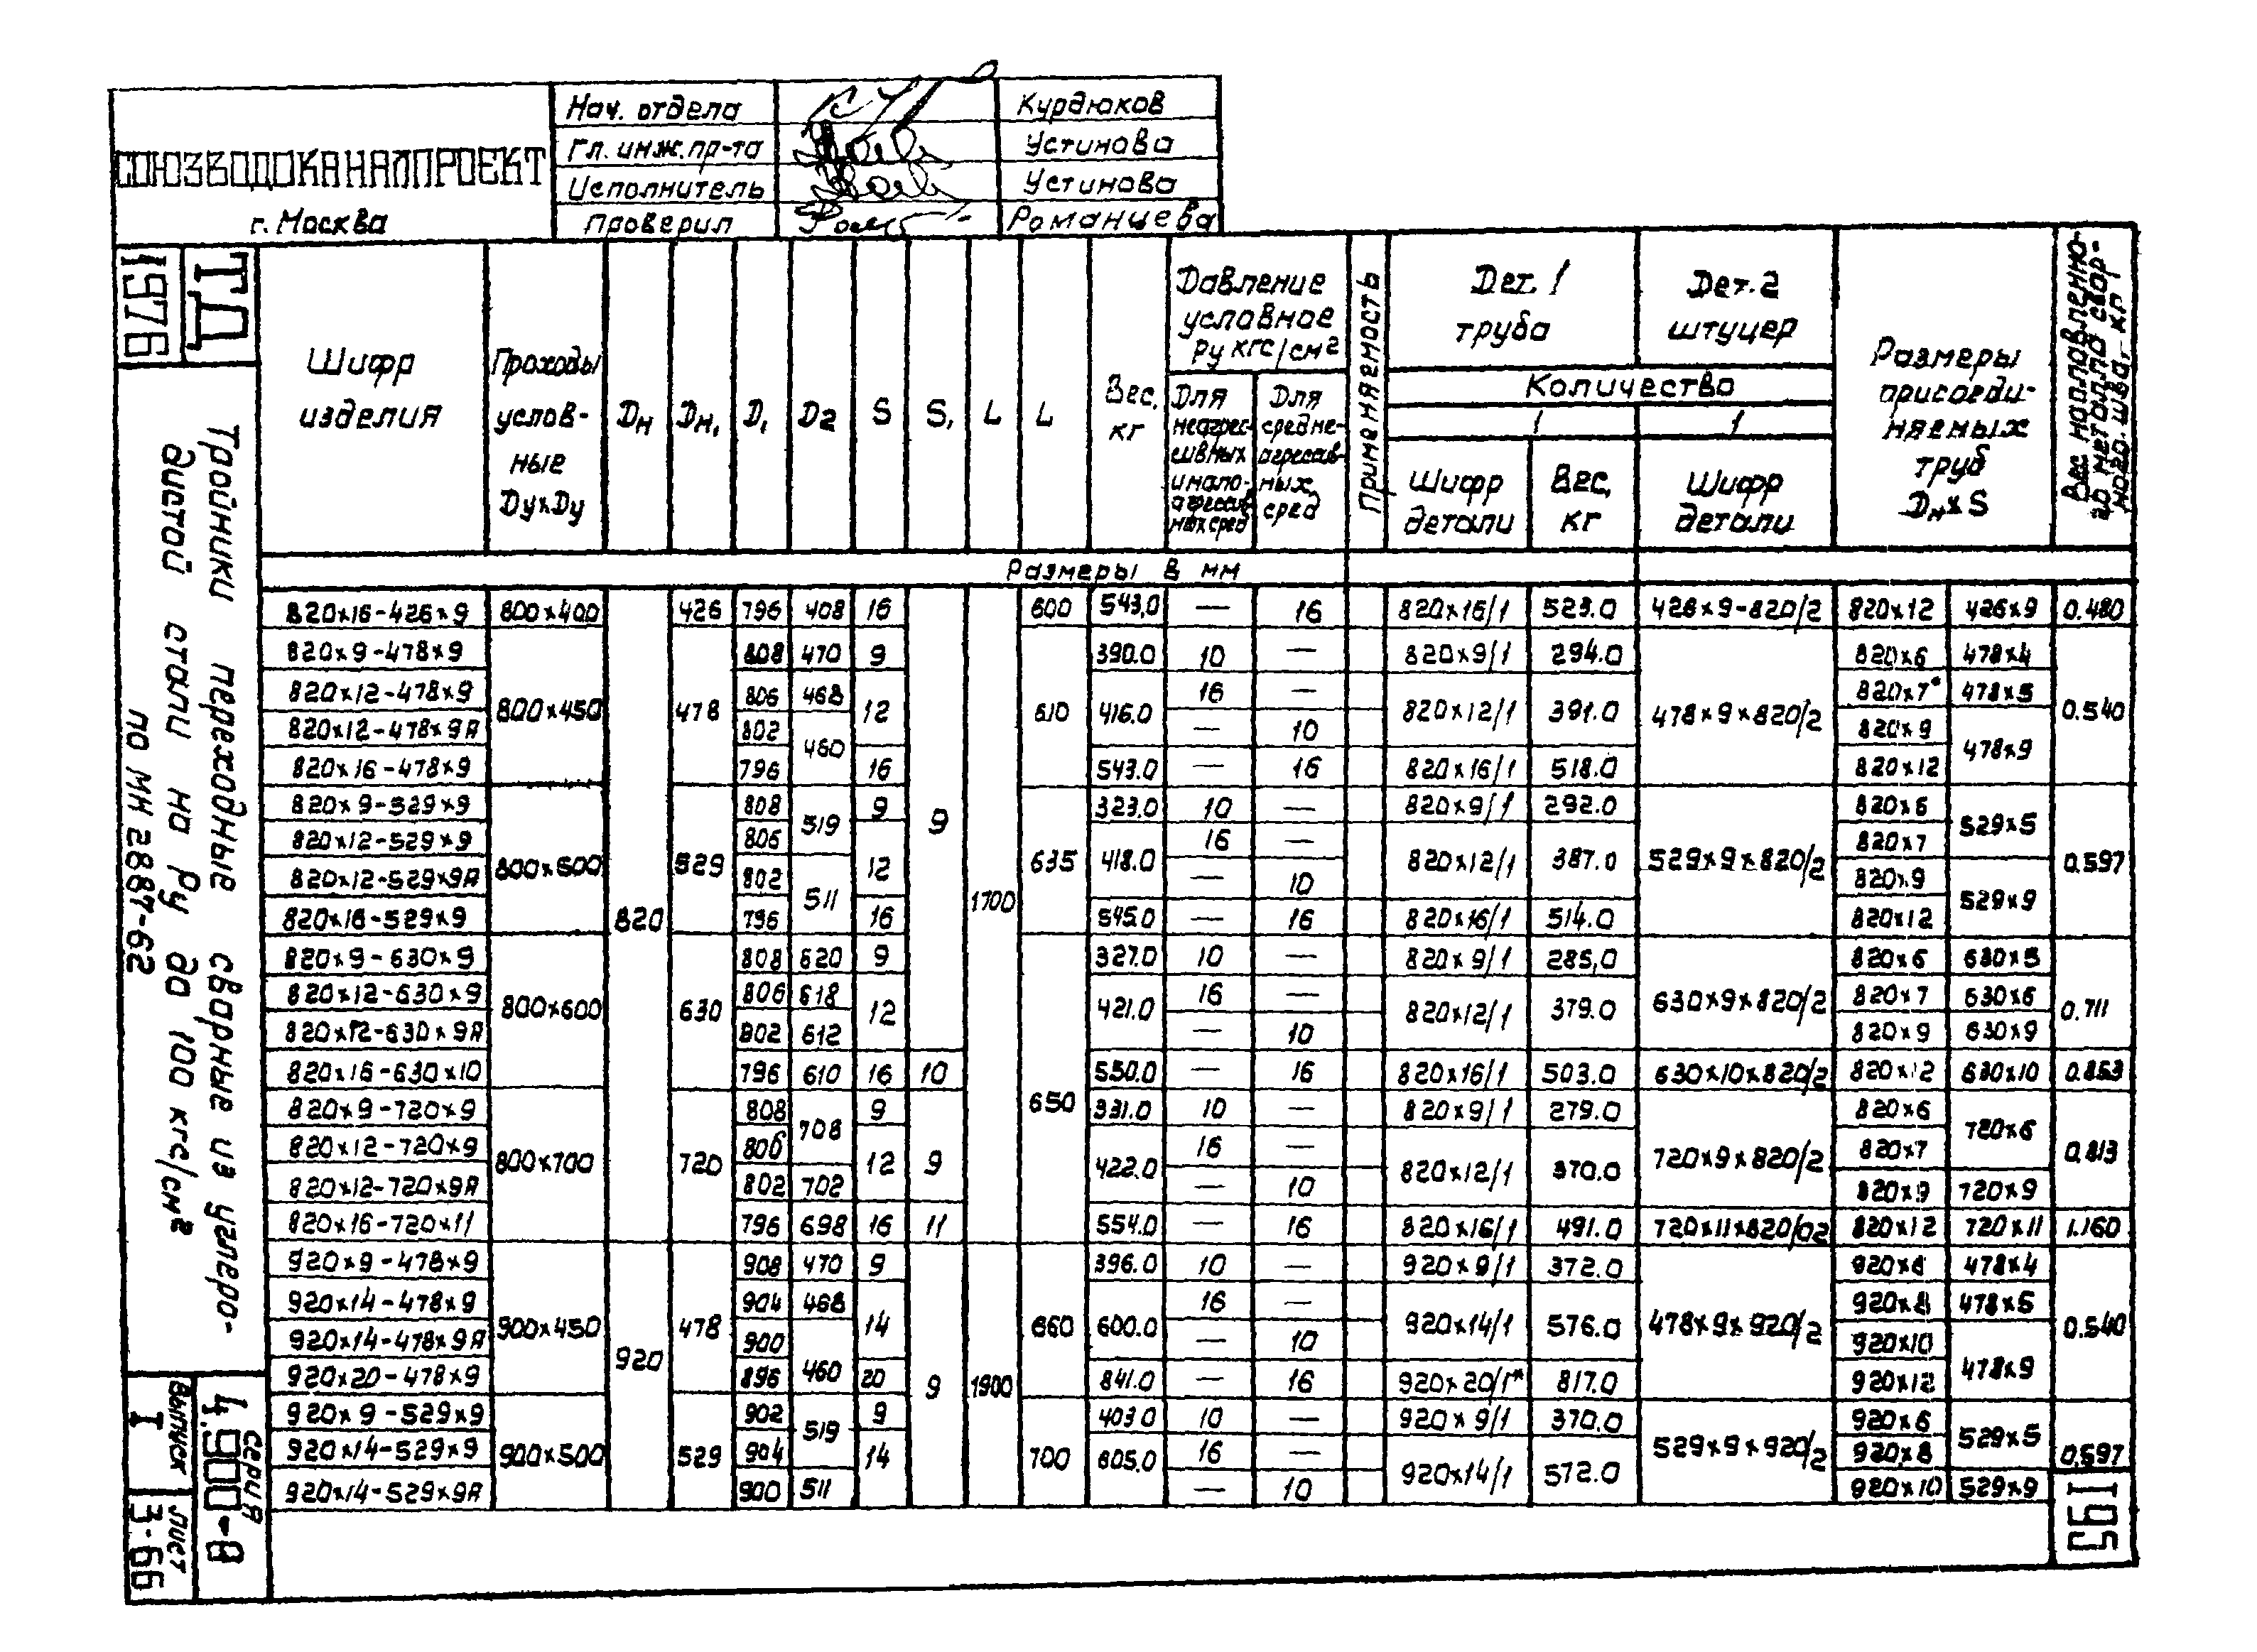 СОЮЗВОДОКАНАЛПРОЕКТ
г. Москва
Нач. отдела Курдюков
Гл. инж. пр-та Устинова
Исполнитель Устинова
Проверил Романцева
ТД
1976
Тройники переходные сварные из углеро-
дистой стали на Ру до 100 кгс/см²
по МН 2887-62
серия
4.900-8
Выпуск I
лист
3-66
195
Шифр изделия
Проходы условные Ду×Ду
Дн Дн₁ Д₁ Д2 S S₁ L L
Вес, кг
Давление условное Ру кгс/см²
Для неагрессивных и малоагрессивных сред
Для среднеагрессивных сред
Применяемость
Дет. 1 труба
Дет. 2 штуцер
Количество
1 1
Шифр детали
Вес, кг
Шифр детали
Размеры присоединяемых труб Дн×S
Вес наплавленного металла сварного шва, кг
Размеры в мм
820×16-426×9 800×400 820 426 796 408 16 9 1700 600 543,0 — 16 820×16/1 523.0 426×9-820/2 820×12 426×9 0.480
820×9-478×9 800×450 478 808 470 9 610 390.0 10 — 820×9/1 294.0 478×9×820/2 820×6 478×4 0.540
820×12-478×9 806 468 12 416.0 16 — 820×12/1 391.0 820×7* 478×5
820×12-478×9А 802 460 — 10 820×9 478×9
820×16-478×9 796 16 543.0 — 16 820×16/1 518.0 820×12
820×9-529×9 800×500 529 808 519 9 635 323.0 10 — 820×9/1 292.0 529×9×820/2 820×6 529×5 0.597
820×12-529×9 806 12 418.0 16 — 820×12/1 387.0 820×7
820×12-529×9А 802 511 — 10 820×9 529×9
820×16-529×9 796 16 545.0 — 16 820×16/1 514.0 820×12
820×9-630×9 800×600 630 808 620 9 650 327.0 10 — 820×9/1 285,0 630×9×820/2 820×6 630×5 0.711
820×12-630×9 806 618 12 421.0 16 — 820×12/1 379.0 820×7 630×6
820×12-630×9А 802 612 — 10 820×9 630×9
820×16-630×10 796 610 16 10 550.0 — 16 820×16/1 503.0 630×10×820/2 820×12 630×10 0.853
820×9-720×9 800×700 720 808 708 9 9 331.0 10 — 820×9/1 279.0 720×9×820/2 820×6 720×6 0.813
820×12-720×9 806 12 422.0 16 — 820×12/1 370.0 820×7
820×12-720×9А 802 702 — 10 820×9 720×9
820×16-720×11 796 698 16 11 554.0 — 16 820×16/1 491.0 720×11×820/02 820×12 720×11 1.160
920×9-478×9 900×450 920 478 908 470 9 9 1900 660 396.0 10 — 920×9/1 372.0 478×9×920/2 920×6 478×4 0.540
920×14-478×9 904 468 14 600.0 16 — 920×14/1 576.0 920×8 478×5
920×14-478×9А 900 460 — 10 920×10 478×9
920×20-478×9 896 20 841.0 — 16 920×20/1* 817.0 920×12
920×9-529×9 900×500 529 902 519 9 700 403.0 10 — 920×9/1 370.0 529×9×920/2 920×6 529×5 0.597
920×14-529×9 904 14 605.0 16 — 920×14/1 572.0 920×8
920×14-529×9А 900 511 — 10 920×10 529×9